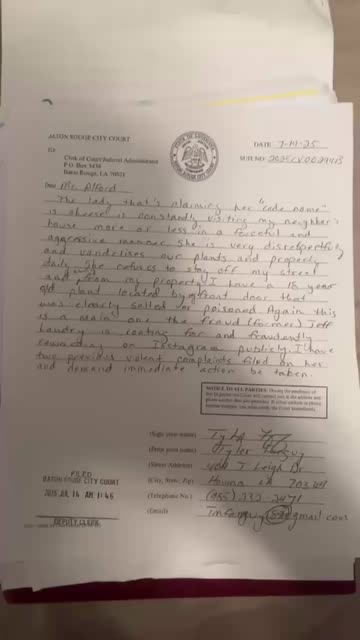 BATON ROUGE CITY COURT
TO:
Clerk of Court/Judicial Administrator
P.O. Box 3438
Baton Rouge, LA 70821
DATE 7-14-25
SUIT NO.
Dear Mr. Alford
The lady that's claiming her "code name"
is cheese is constantly visiting my neighbor's
house more or less in a forceful and
aggressive manner. She is very disrespectful
and vandelises our plants and property
daily. She refuses to stay off my street
and from my property I have a 15 year
old plant located by front door that
was clearly spilled or poisoned. Again this
is a main one the fraud (former) Jeff
landry is rooting for and fraudently
rewarding on Instagram publicly. I have
two previous violent complaints filed on her
and demand immediate action be taken.
NOTICE TO ALL PARTIES:
(Sign your name)
(Print your name) Tyler
(Street Address) Leigh Dr
(City, State, Zip) Houma LA
(Telephone No.)
(Email) @gmail.com
FILED
BATON ROUGE CITY COURT
2025 JUL 14 AM 11:46
DEPUTY CLERK